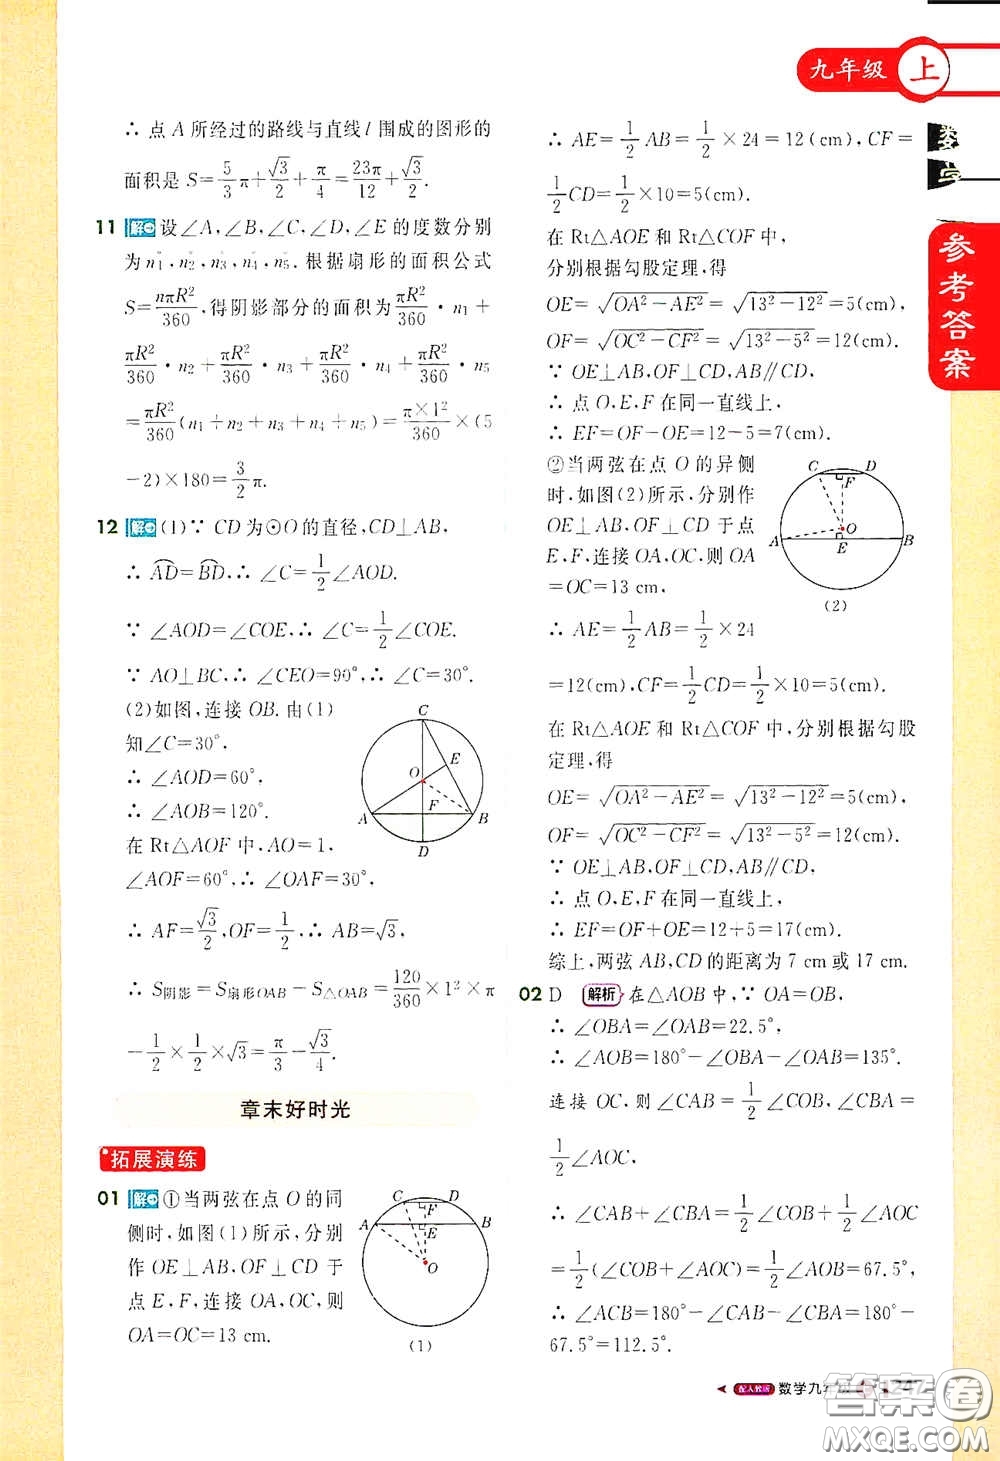 九年级 上
数学
参考答案
∴ 点 A 所经过的路线与直线 l 围成的图形的
面积是 S=5/3π+√3/2+π/4=23π/12+√3/2.
11 解 设∠A,∠B,∠C,∠D,∠E 的度数分别
为 n₁,n₂,n₃,n₄,n₅. 根据扇形的面积公式
S=nπR²/360,得阴影部分的面积为πR²/360·n₁+
πR²/360·n₂+πR²/360·n₃+πR²/360·n₄+πR²/360·n₅
=πR²/360(n₁+n₂+n₃+n₄+n₅)=π×1²/360×(5
-2)×180=3/2π.
12 解 (1)∵ CD为⊙O的直径,CD⊥AB,
∴ AD=BD,∴ ∠C=1/2∠AOD.
∵ ∠AOD=∠COE,∴ ∠C=1/2∠COE.
∵ AO⊥BC,∴ ∠CEO=90°,∴ ∠C=30°.
(2)如图,连接 OB. 由(1)
知∠C=30°,
∴ ∠AOD=60°,
∴ ∠AOB=120°.
在 Rt△AOF 中,AO=1,
∠AOF=60°,∴ ∠OAF=30°,
C
E
O
F
A
B
D
∴ AF=√3/2,OF=1/2,∴ AB=√3,
∴ S阴影=S扇形OAB-S△OAB=120/360×1²×π
-1/2×1/2×√3=π/3-√3/4.
章末好时光
拓展演练
01 解 ①当两弦在点 O 的同
侧时,如图(1)所示,分别
作 OE⊥AB,OF⊥CD 于
点 E,F,连接 OA,OC,则
OA=OC=13 cm.
C D
F
A E B
O
(1)
∴ AE=1/2AB=1/2×24=12(cm),CF=
1/2CD=1/2×10=5(cm).
在 Rt△AOE 和 Rt△COF 中,
分别根据勾股定理,得
OE=√(OA²-AE²)=√(13²-12²)=5(cm),
OF=√(OC²-CF²)=√(13²-5²)=12(cm).
∵ OE⊥AB,OF⊥CD,AB∥CD,
∴ 点 O,E,F 在同一直线上,
∴ EF=OF-OE=12-5=7(cm).
②当两弦在点 O 的异侧
时,如图(2)所示,分别作
OE⊥AB,OF⊥CD 于点
E,F,连接 OA,OC,则 OA
=OC=13 cm,
C D
F
O
A E B
(2)
∴ AE=1/2AB=1/2×24
=12(cm),CF=1/2CD=1/2×10=5(cm).
在 Rt△AOE 和 Rt△COF 中,分别根据勾股
定理,得
OE=√(OA²-AE²)=√(13²-12²)=5(cm),
OF=√(OC²-CF²)=√(13²-5²)=12(cm).
∵ OE⊥AB,OF⊥CD,AB∥CD,
∴ 点 O,E,F 在同一直线上,
∴ EF=OF+OE=12+5=17(cm).
综上,两弦 AB,CD 的距离为 7 cm 或 17 cm.
02 D 解析 在△AOB 中,∵ OA=OB,
∴ ∠OBA=∠OAB=22.5°,
∴ ∠AOB=180°-∠OBA-∠OAB=135°.
连接 OC,则 ∠CAB=1/2∠COB,∠CBA=
1/2∠AOC,
∴ ∠CAB+∠CBA=1/2∠COB+1/2∠AOC
=1/2(∠COB+∠AOC)=1/2∠AOB=67.5°,
∴ ∠ACB=180°-∠CAB-∠CBA=180°-
67.5°=112.5°.
配人教版 数学九年级
答案卷
MXQE.COM